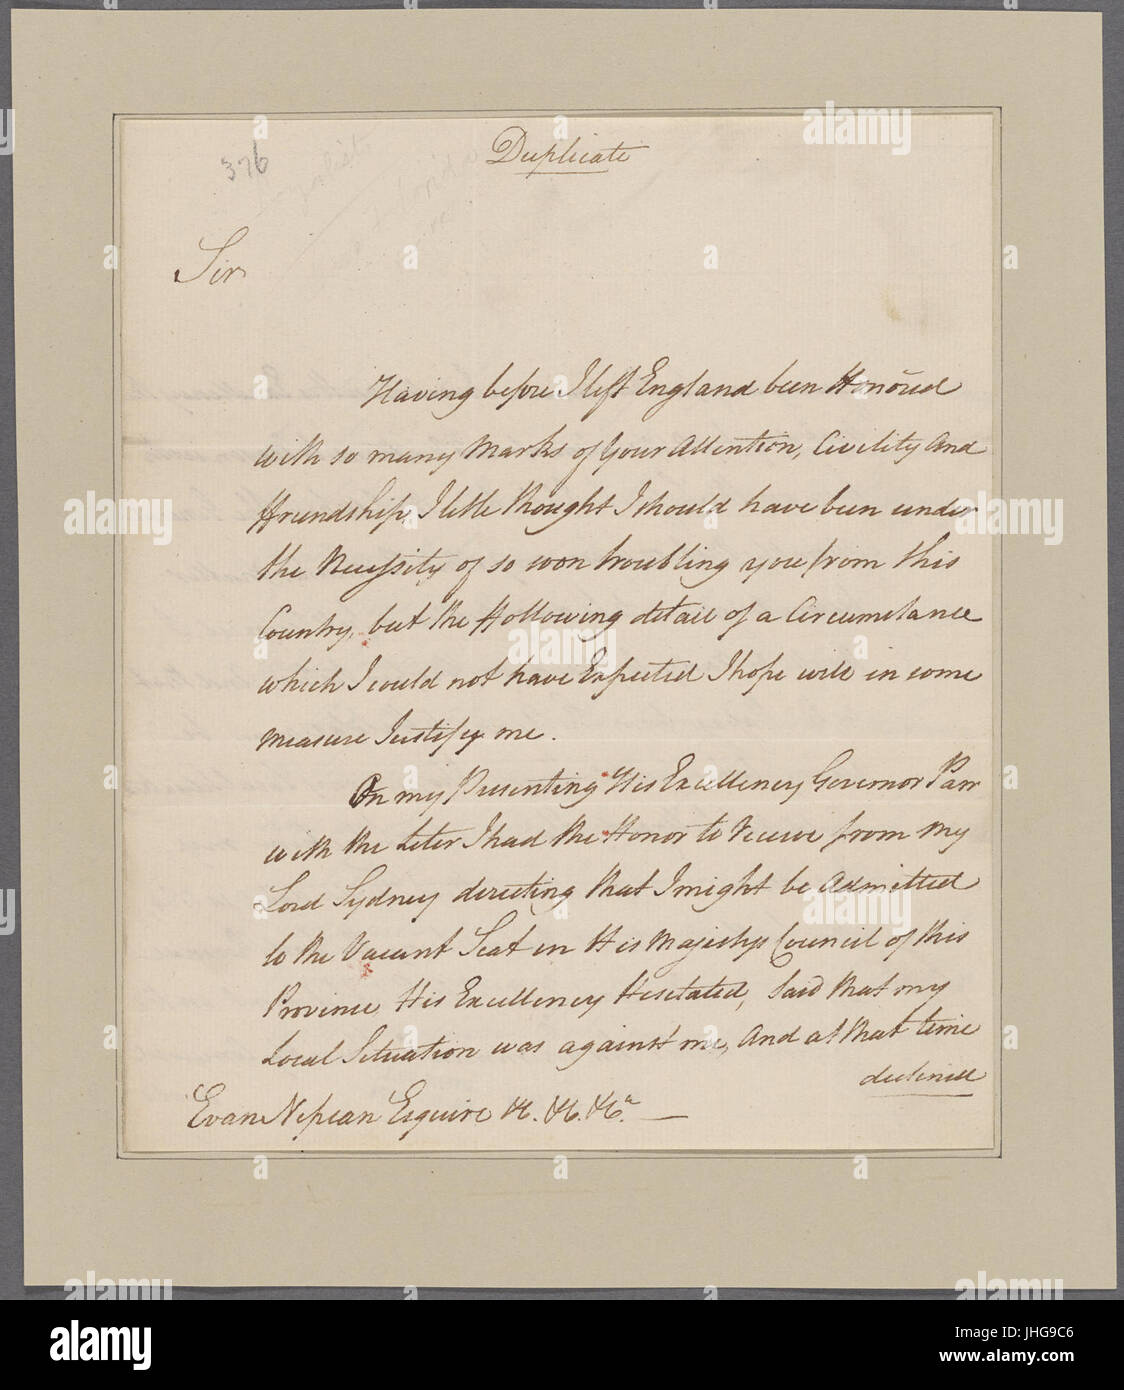 Duplicate
376
Sir
Having before I left England been Honōred
with so many Marks of Your Attention, Civility And
Ffriendship, I little thought I should have been under
the Necessity of so soon troubling you from this
Country, but the Following detail of a Circumstance
which I could not have Expected I hope will in some
measure Justify me.
On my Presenting His Excellency Governor Parr
with the Leter I had the Honor to receive from My
Lord Sydney directing that I might be Admitted
to the Vacant Seat in His Majestys Council of this
Province His Excellency Hesitated, Said that my
Local Situation was against me, And at that time
declined
Evan Nepean Esquire &c. &c. &c.a
alamy
a
alamy stock photo
Image ID: JHG9C6
www.alamy.com